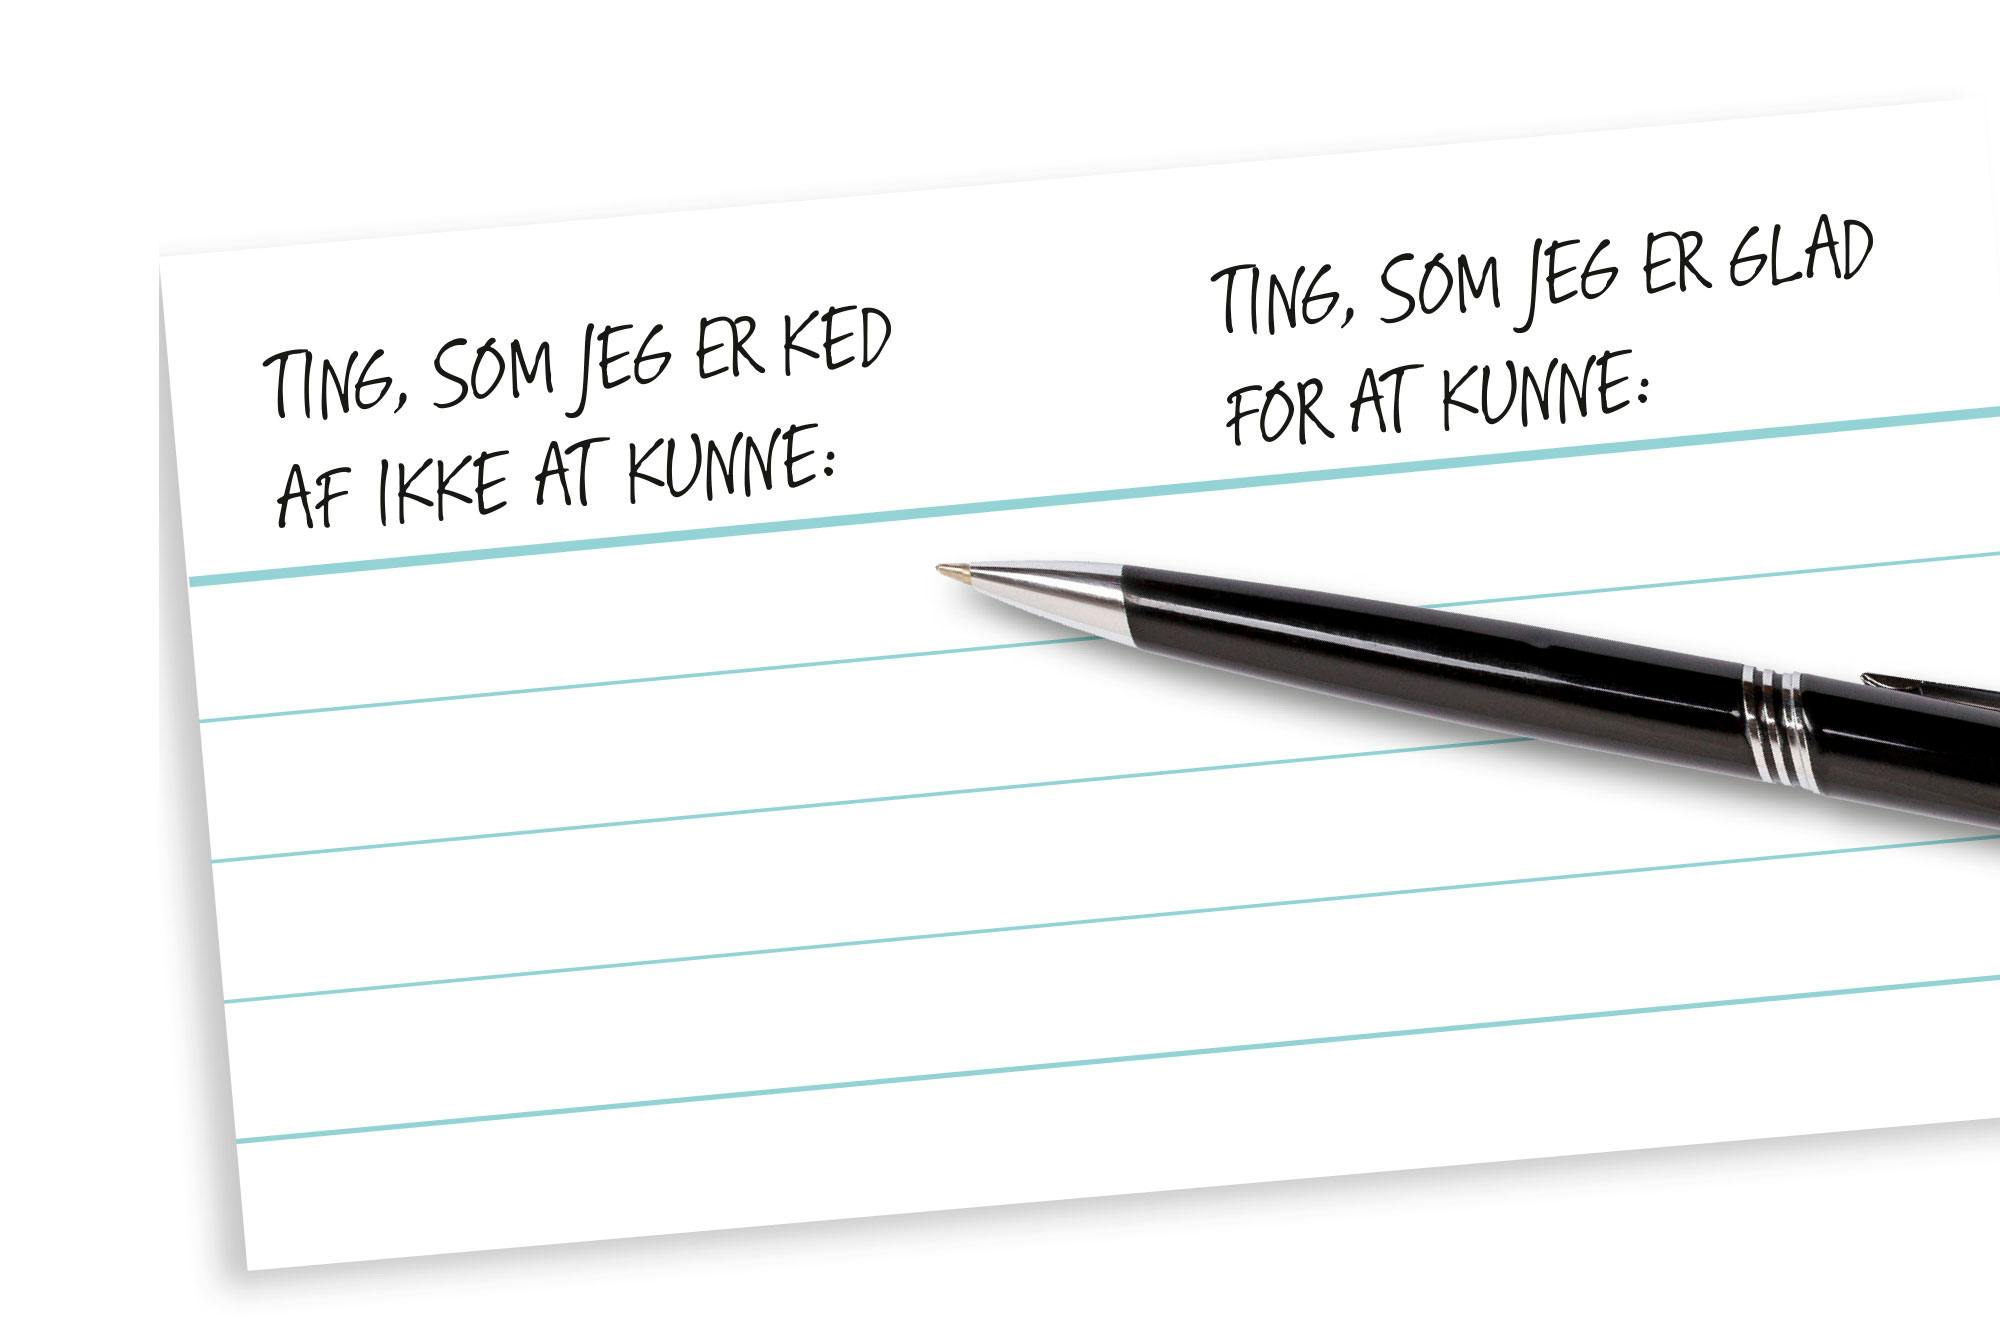 TING, SOM JEG ER KED
AF IKKE AT KUNNE:
TING, SOM JEG ER GLAD
FOR AT KUNNE: